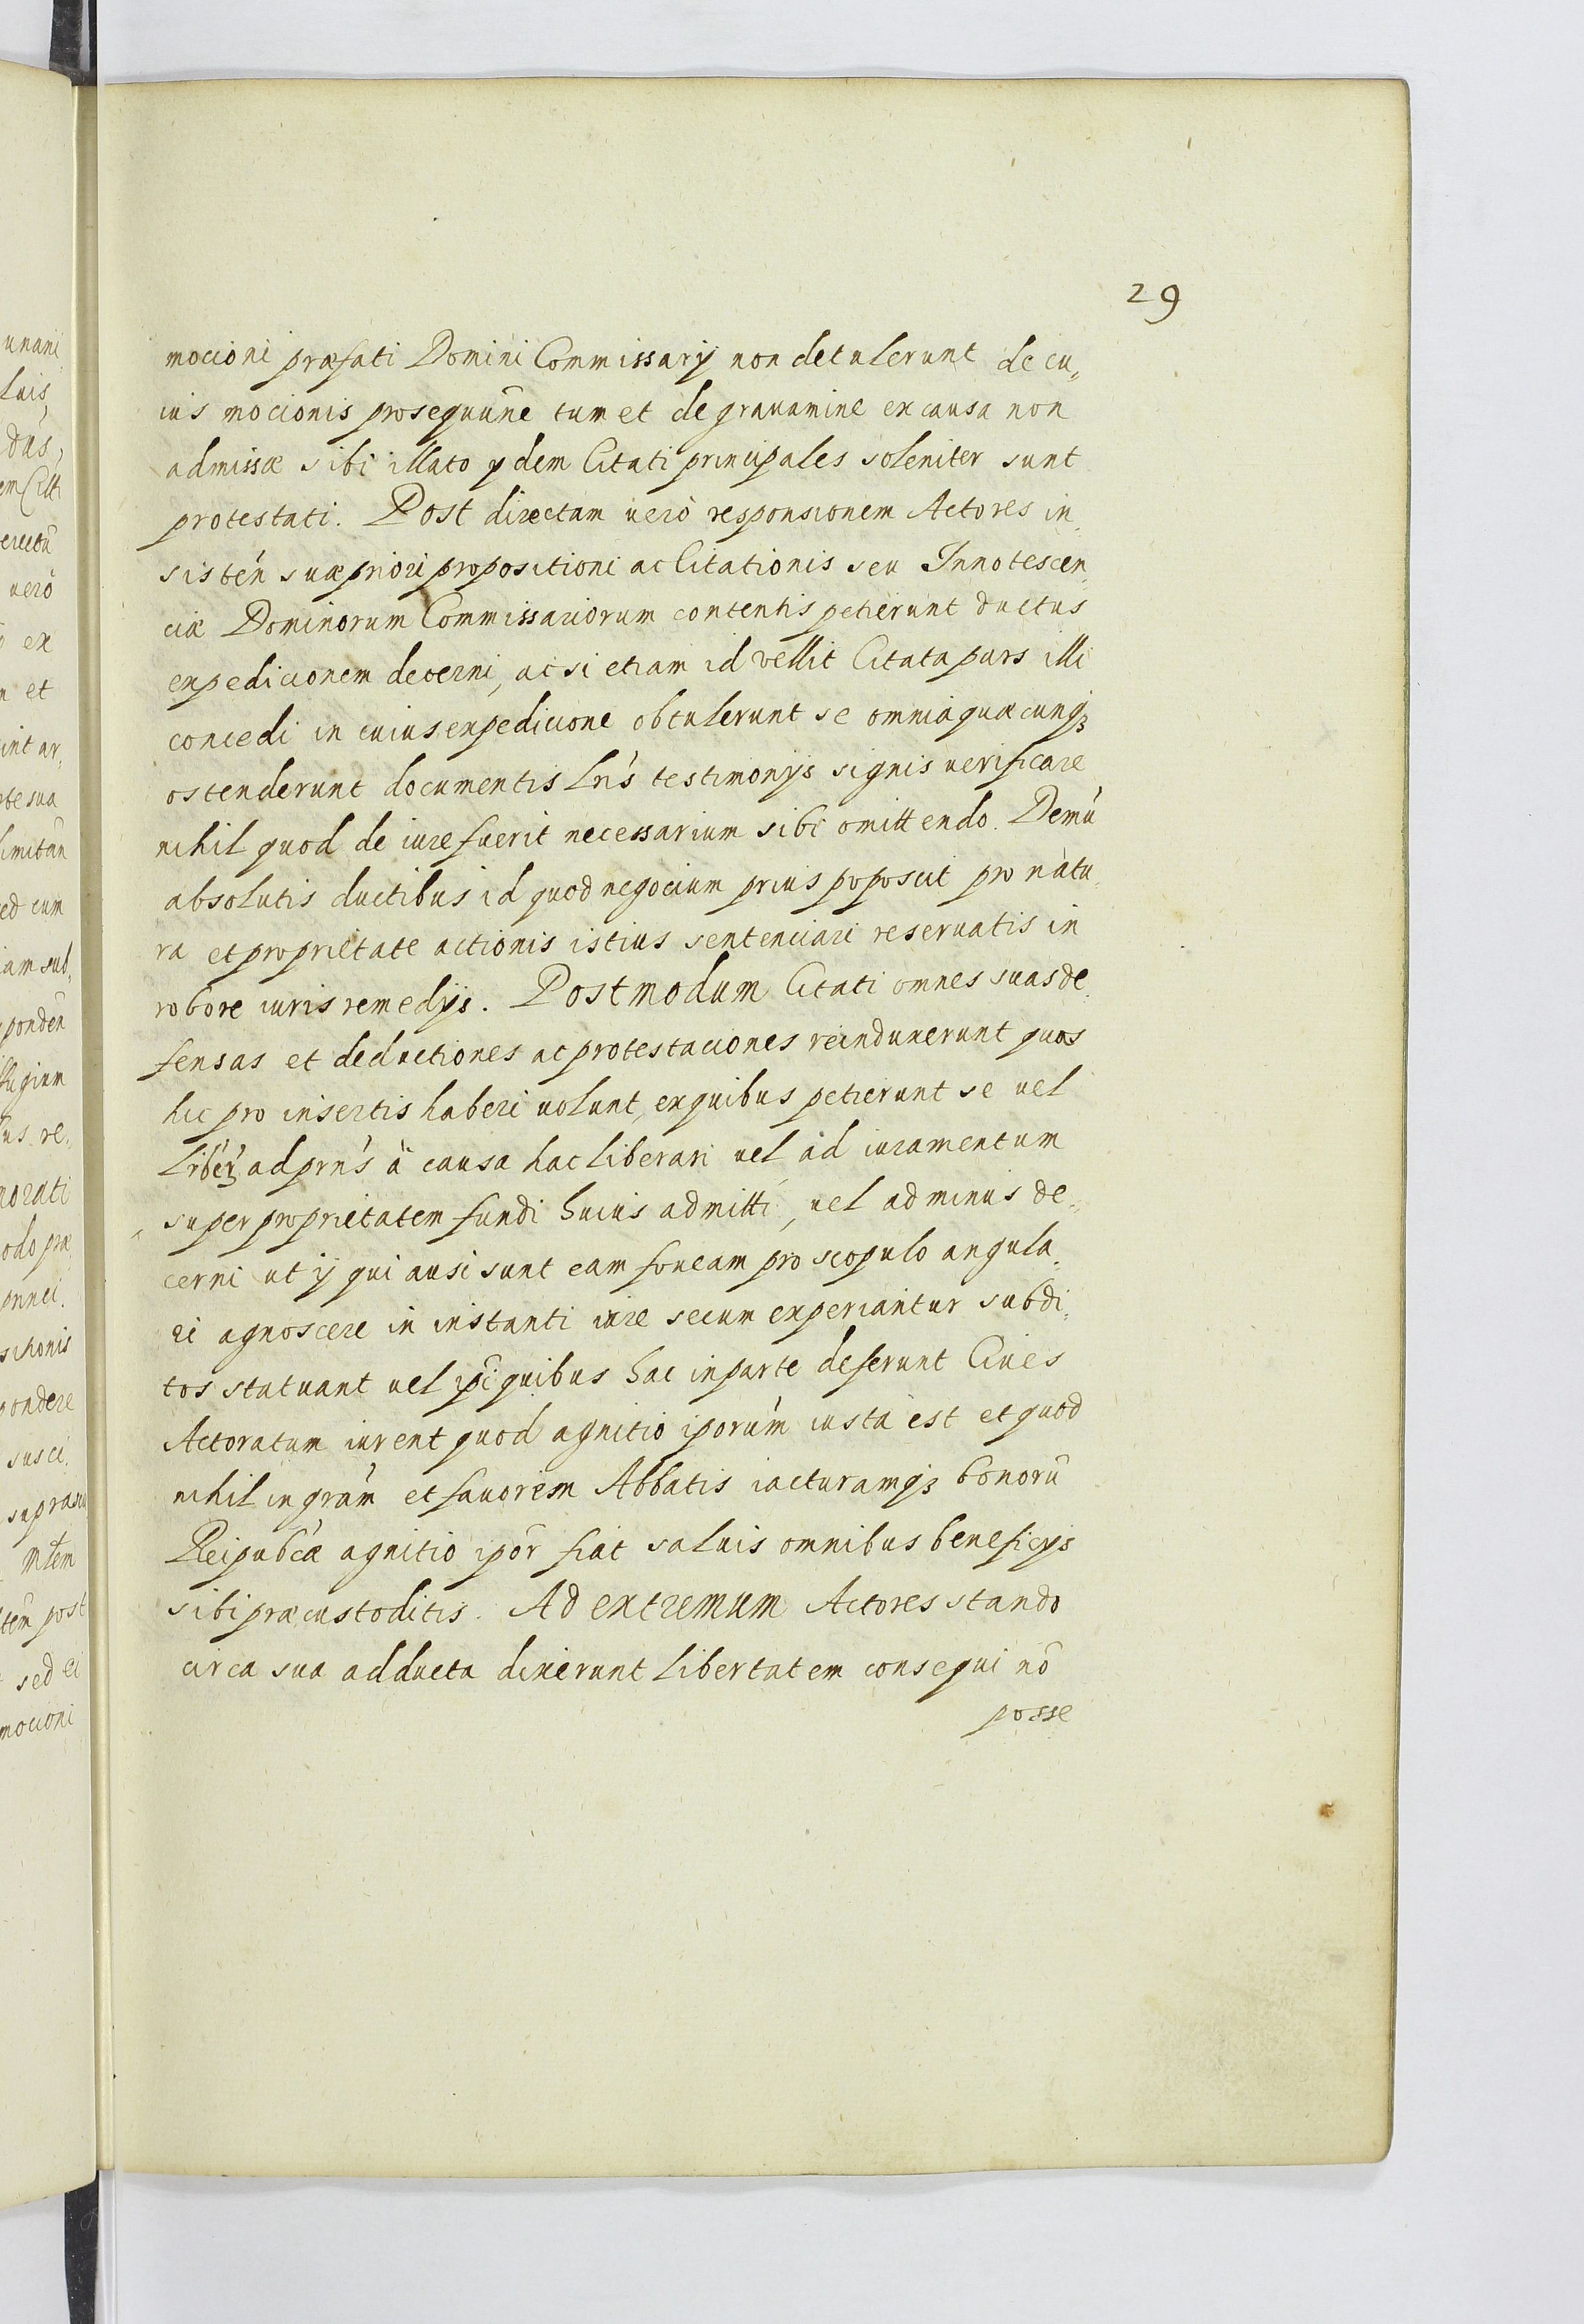 29
mocioni præfati Domini Commissarÿ non detulerunt de cu„
ius mocionis prosequũne tum et de grauamine ex causa non
admissæ sibi illato ÿdem Citati principales soleniter sunt
protestati. Post directam uerò responsionem Actores in„
sisteń suæ priori propositioni ac Citationis seu Innotescen„
ciæ Dominorum Commissariorum contentis petierunt ductus
expedicionem decerni, ac si etiam id vellit Citata pars illi
concedi in cuius expedicione obtulerunt se omnia quæcunqȝ
ostenderunt documentis Lrís testimonÿs signis uerificare
nihil quod de iure fuerit necessarium sibi omittendo. Demú
absolutis ductibus id quod negocium prius poposcit pro natu„
ra et proprietate actionis istius sentenciari reseruatis in
robore iuris remedÿs. Postmodum Citati omnes suas de„
fensas et deductiones ac protestaciones reinduxerunt quos
hic pro insertis haberi uolunt, ex quibus petierunt se uel
Liberȝ ad prńs à causa hac liberari uel ad iuramentum
super proprietatem fundi huius admitti, uel ad minus de„
cerni ut ÿ qui ausi sunt eam foueam pro scopulo angula„
ri agnoscere in instanti iure secum experiantur subdi„
tos statuant uel ip̃i quibus hac in parte deferunt Ciues
Actoratum iurent quod agnitio iporúm iusta est et quod
nihil in grám et fauorem Abbatis iacturamqȝ bonorũ
Reipubćæ agnitio ipõr fiat saluis omnibus beneficÿs
sibi præcustoditis. Ad extremum Actores stando
circa sua adducta dixerunt libertatem consequi nõ
posse